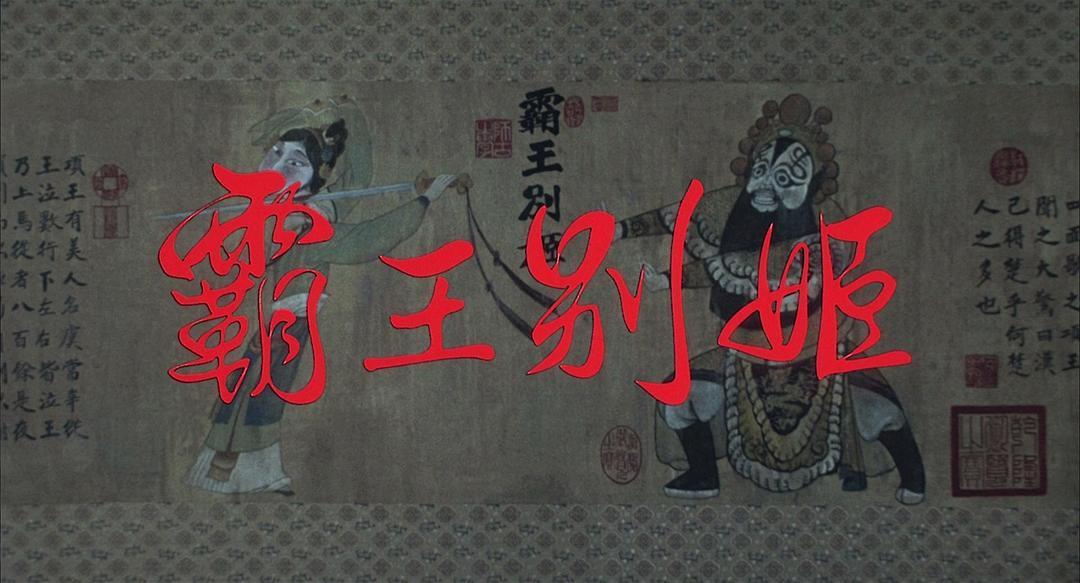 霸王别姬
霸王別姬
四面歌之項王
聞之大驚曰漢
己得楚乎何楚
人之多也
項王有美人名虞當幸從
王泣數行下左右皆泣王
乃上馬從者八百餘是夜